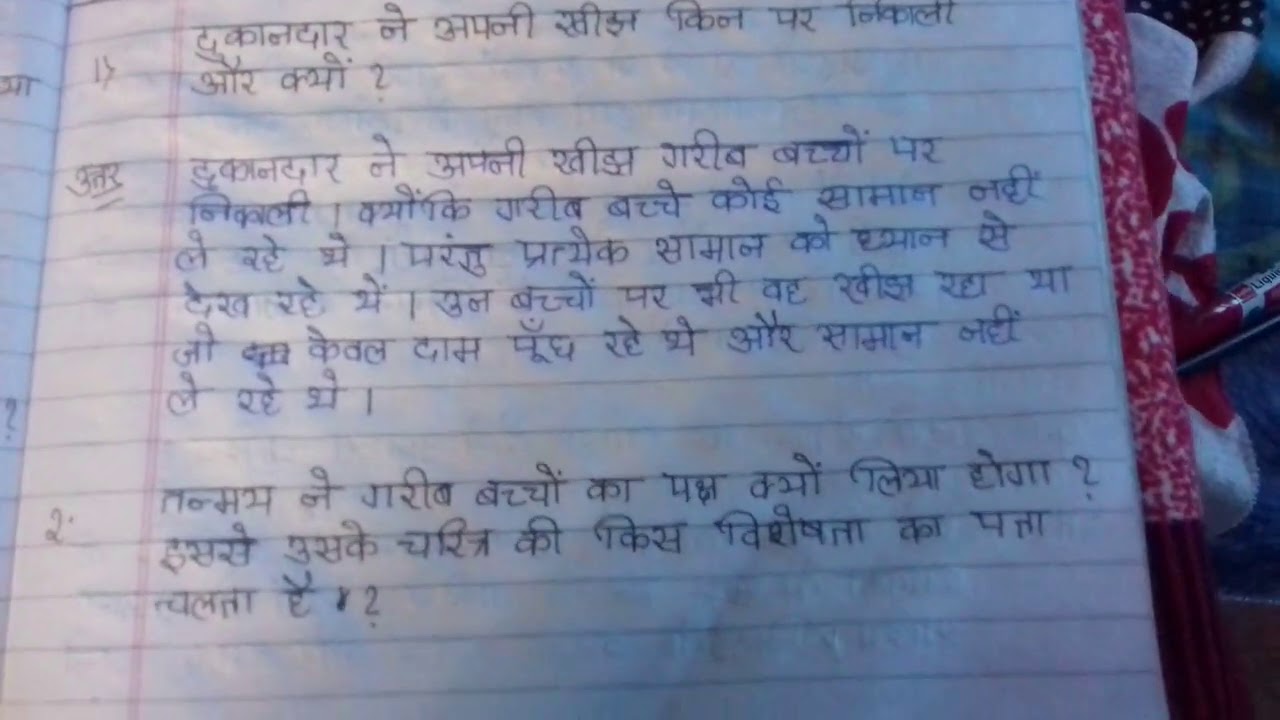 दुकानदार ने अपनी खीझ किन पर निकाली
1) और क्यों ?
उत्तर दुकानदार ने अपनी खीझ गरीब बच्चों पर
निकाली । क्योंकि गरीब बच्चे कोई सामान नहीं
ले रहे थे । परंतु प्रत्येक सामान को ध्यान से
देख रहे थें । उन बच्चों पर भी वह खीझ रहा था
जो केवल दाम पूँछ रहे थे और सामान नहीं
ले रहे थे ।
तन्मय ने गरीब बच्चों का पक्ष क्यों लिया होगा ?
2. इससे उसके चरित्र की किस विशेषता का पता
चलता है ?